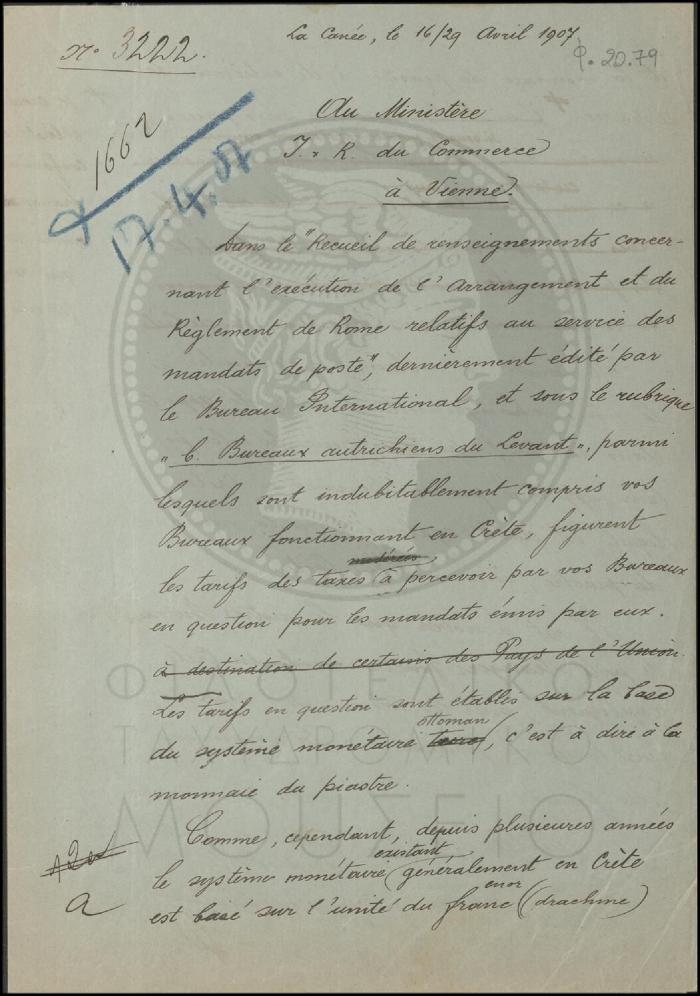 La Canée, le 16/29 Avril 1907
No 3222.
φ. 20.79
1662
17.4.07
Au Ministère
I. & R. du Commerce
à Vienne.
Dans le "Recueil de renseignements concer-
nant l'exécution de l'Arrangement et du
Règlement de Rome relatifs au service des
mandats de poste", dernièrement édité par
le Bureau International, et sous le rubrique
„b. Bureaux autrichiens du Levant", parmi
lesquels sont indubitablement compris vos
Bureaux fonctionnant en Crète, figurent
modérées
les tarifs des taxes à percevoir par vos Bureaux
en question pour les mandats émis par eux.
à destination de certains des Pays de l'Union.
Les tarifs en question sont établis sur la base
ottoman
du système monétaire turc, c'est à dire à la
monnaie du piastre.
Comme, cependant, depuis plusieures années
existant
le système monétaire généralement en Crète
en or
est basé sur l'unité du franc (drachme)
a
ΦΙΛΟΤΕΛΙΚΟ
ΤΑΧΥΔΡΟΜΙΚΟ
ΜΟΥΣΕΙΟ